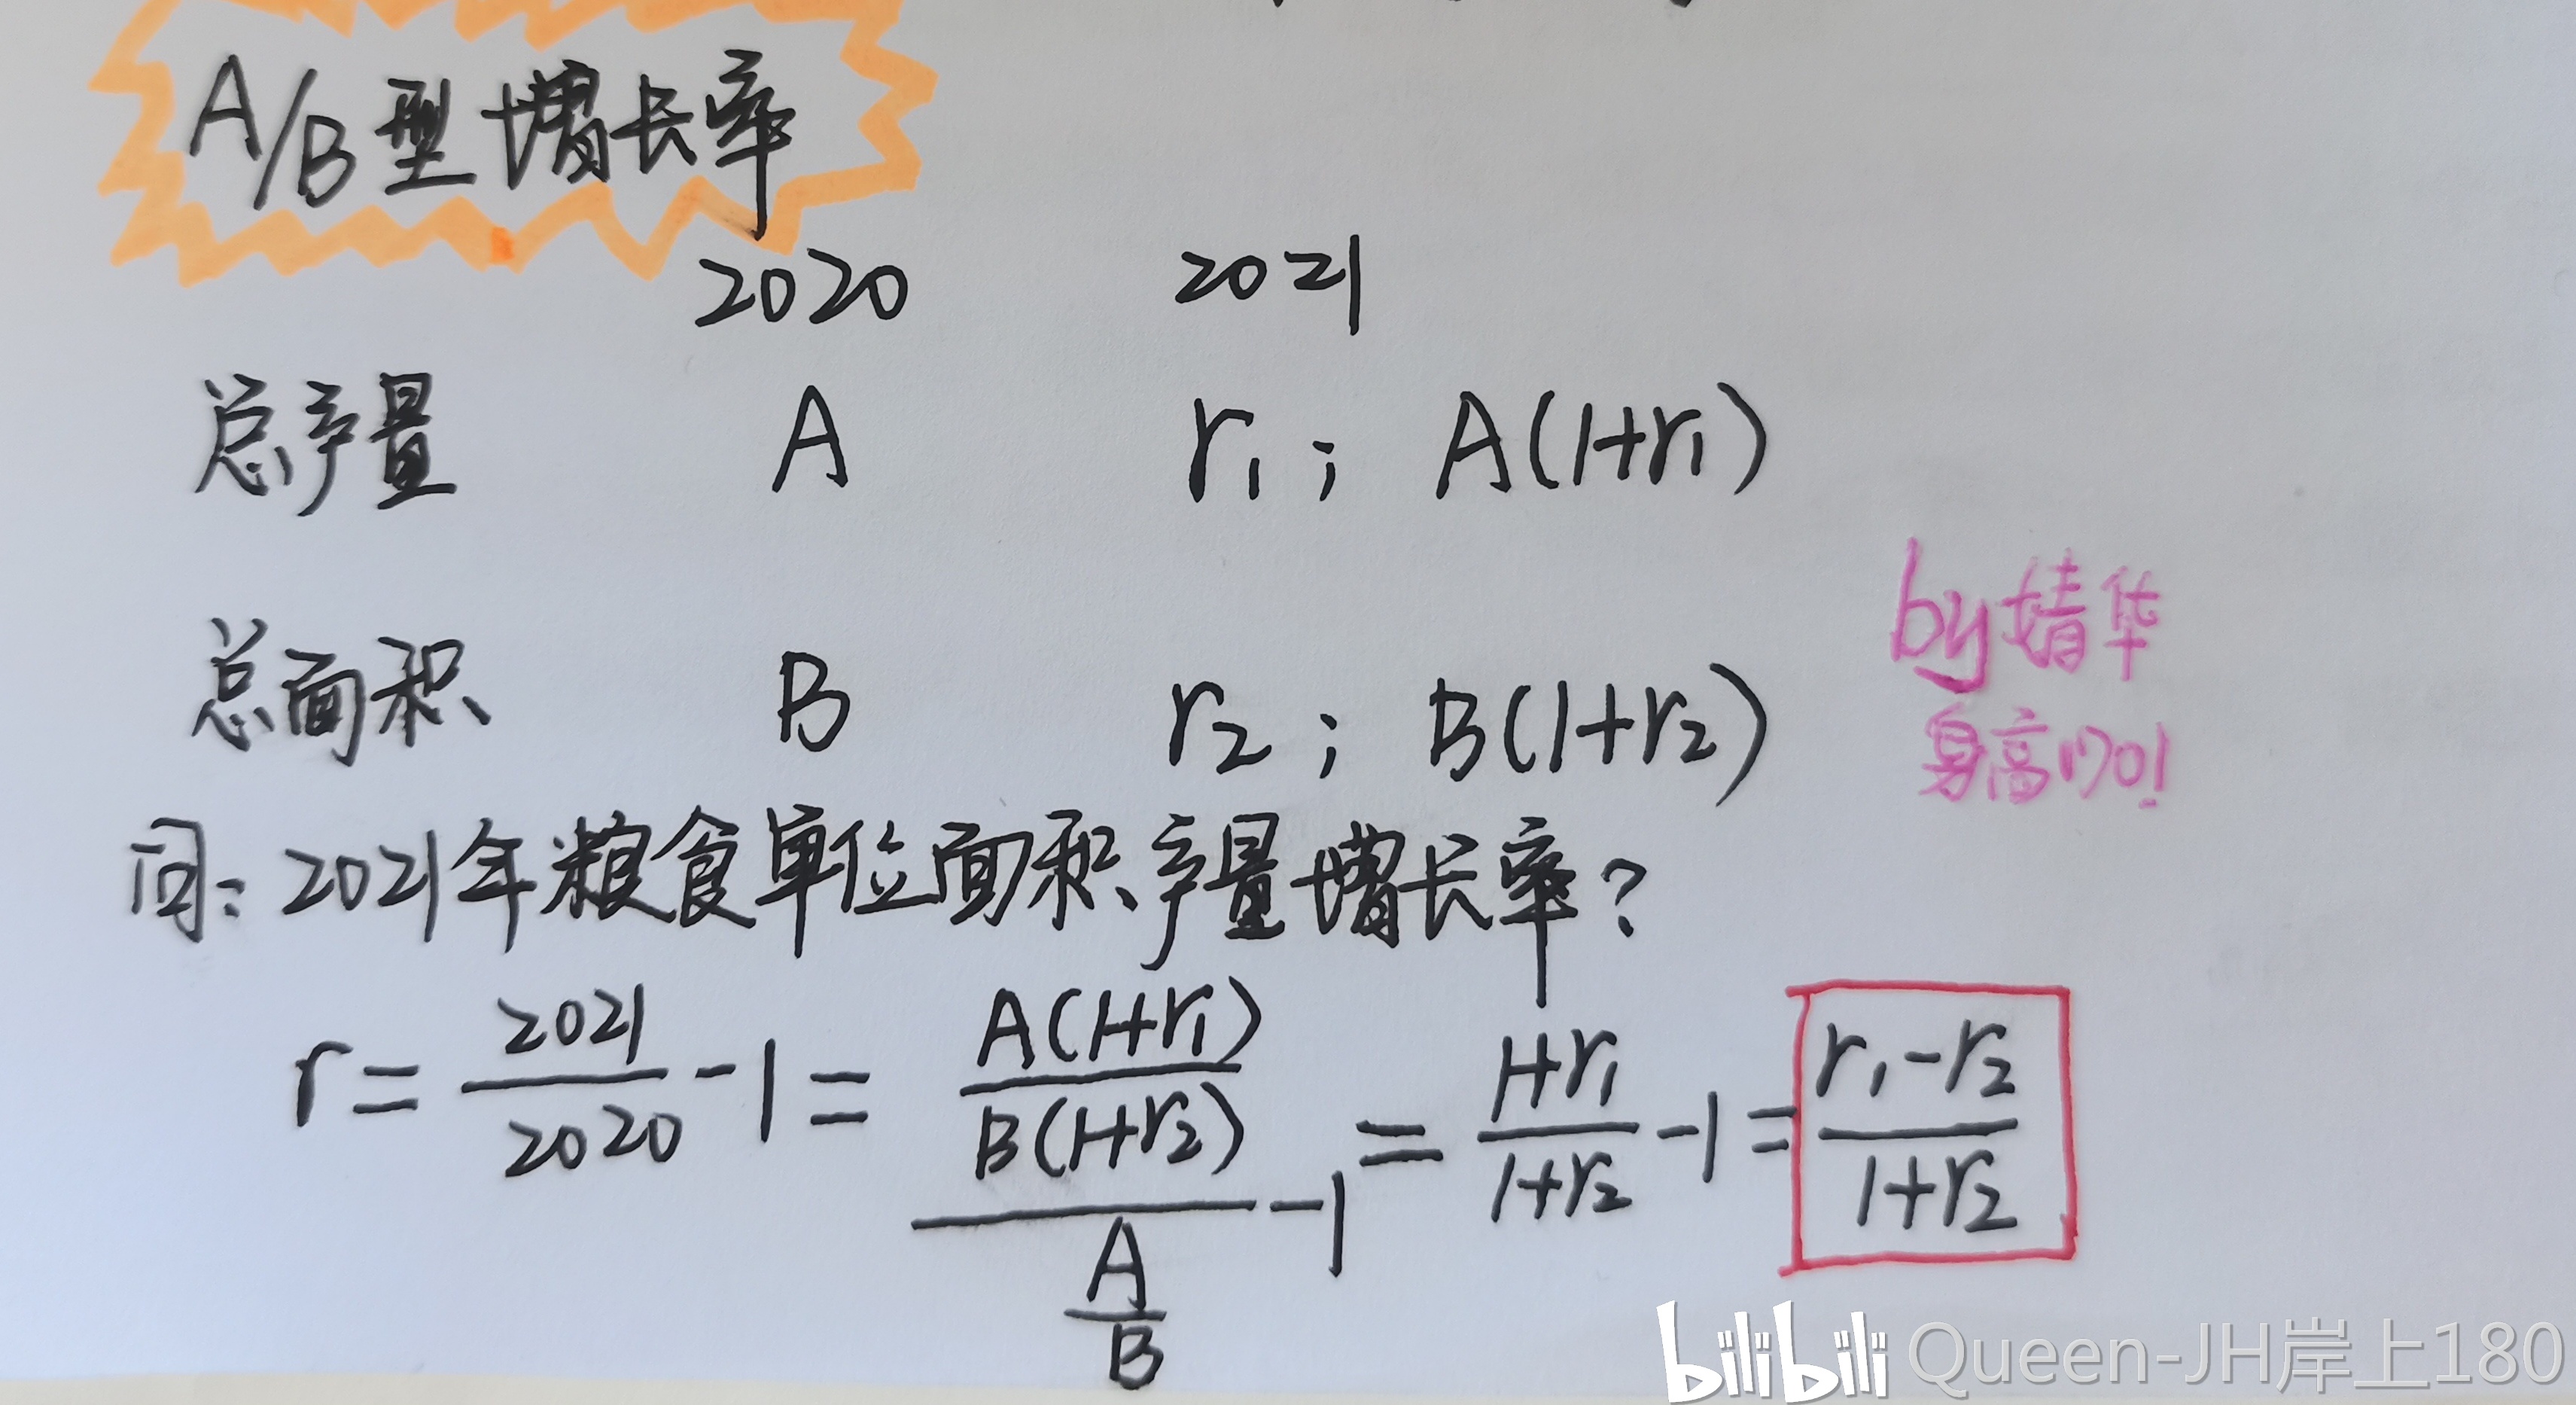 A/B型增长率
2020 2021
总产量 A r₁; A(1+r₁)
总面积 B r₂; B(1+r₂)
by婧华
身高170!
问: 2021年粮食单位面积产量增长率?
r = 2021/2020 - 1 = (A(1+r₁)/B(1+r₂))/(A/B) - 1 = (1+r₁)/(1+r₂) - 1 = (r₁-r₂)/(1+r₂)
bilibili Queen-JH岸上180